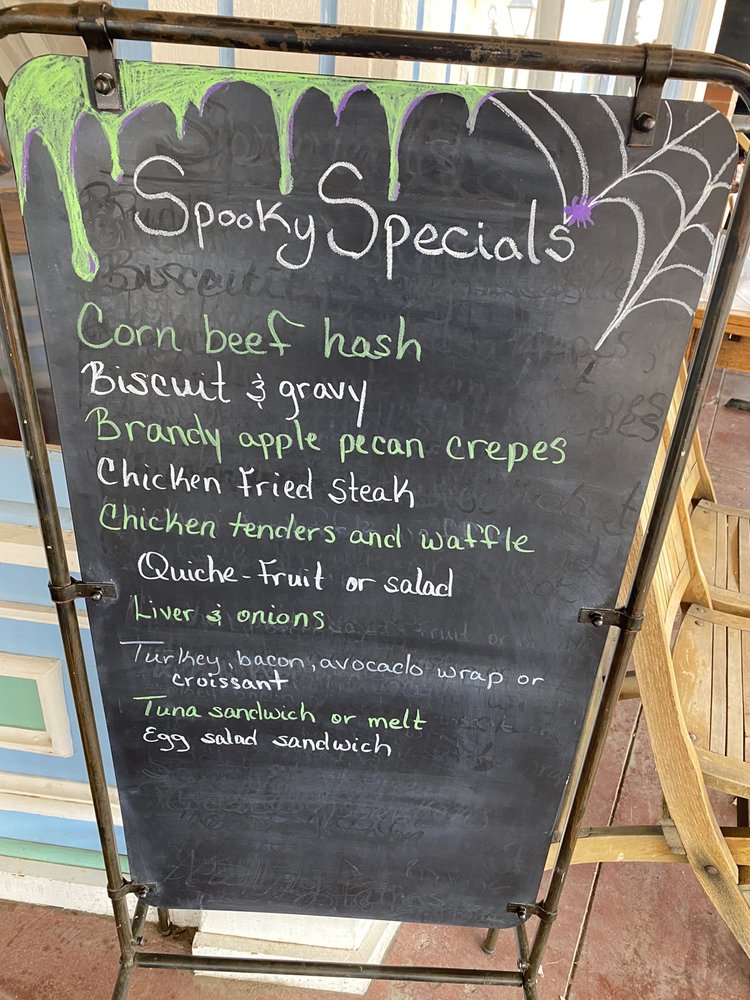 Spooky Specials
Corn beef hash
Biscuit & gravy
Brandy apple pecan crepes
Chicken Fried Steak
Chicken tenders and waffle
Quiche-Fruit or salad
Liver & onions
Turkey, bacon, avocado wrap or
croissant
Tuna sandwich or melt
Egg salad sandwich